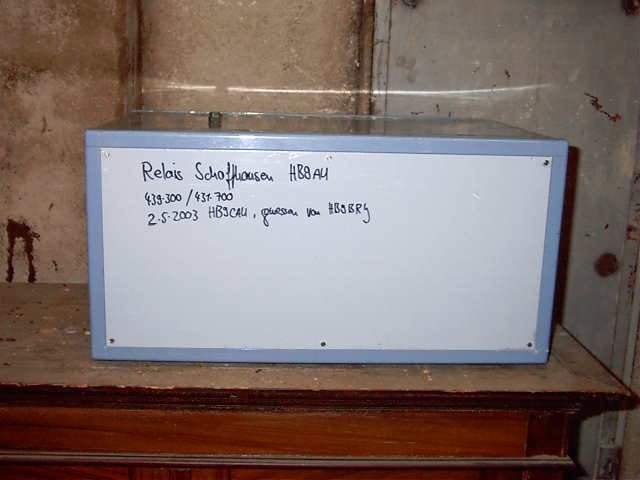 Relais Schaffhausen HB9AU
439.300 / 431.700
2.5.2003 HB9CAU, gemessen von HB9BRJ